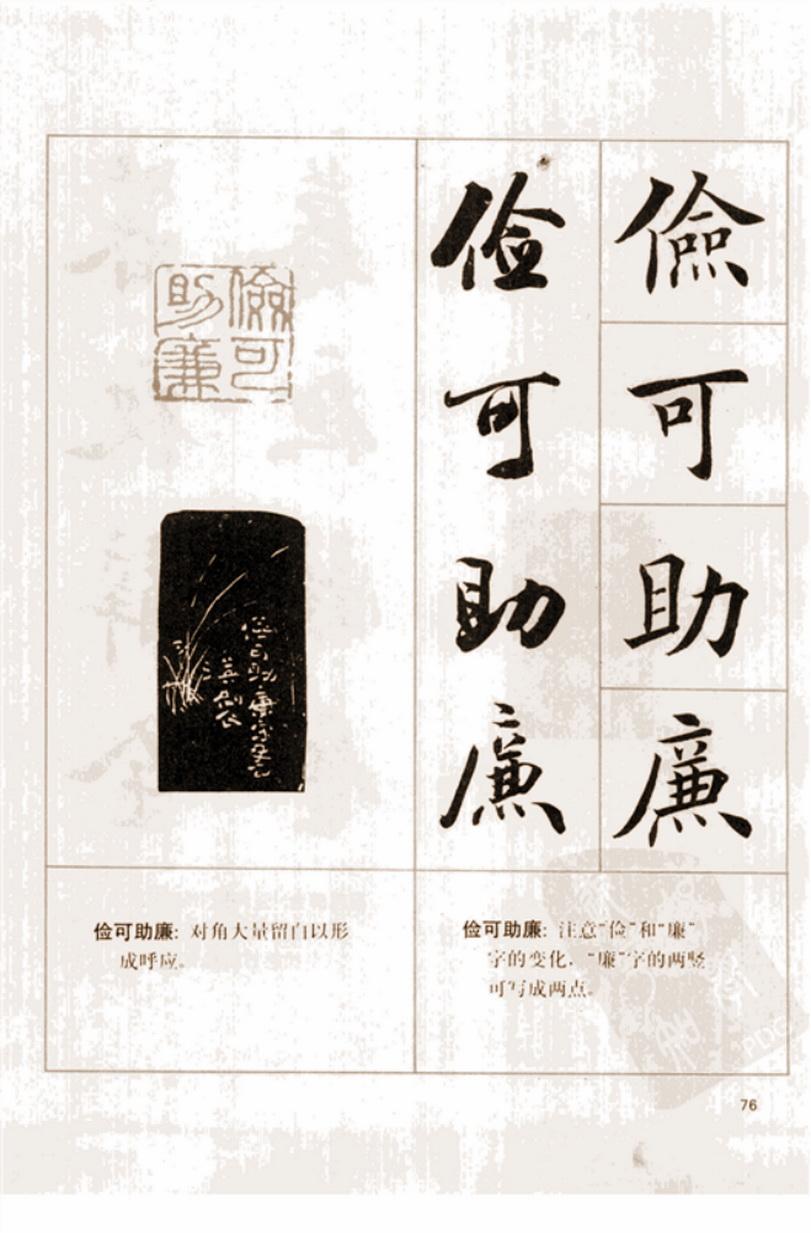 儉可助廉
俭可助廉
儉可助廉
俭可助廉
俭可助廉：注意“俭”和“廉”
字的变化，“廉”字的两竖
可写成两点。
俭可助廉：对角大量留白以形
成呼应。
76